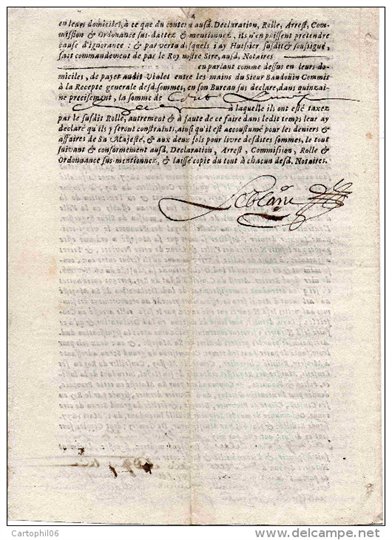 4
en leurs domiciles, à ce que du contenu ausd. Declaration, Rolle, Arrest, Com-
mission & Ordonance sus-dattez & mentionnez, ils n'en puissent pretendre
cause d'ignorance : & par vertu desquels i'ay Huissier susdit & soussigné,
fait commandement de par le Roy nostre Sire, ausd. Notaires
en parlant comme dessus en leurs do-
miciles, de payer audit Violet entre les mains du Sieur Baudoüin Commis
à la Recepte generale desd. sommes, en son Bureau sus declaré, dans quinzai-
ne precisément, la somme de
à laquelle il ont esté taxez
par le susdit Rolle, autrement & à faute de ce faire dans ledit temps leur ay
declaré qu'ils y seront contraints, ainsi qu'il est accoustumé pour les deniers &
affaires de Sa Majesté, & aux deux sols pour livre desdites sommes, le tout
suivant & conformément ausd. Declaration, Arrest, Commission, Rolle &
Ordonance sus-mentionnez, & laissé copie du tout à chacun desd. Notaires.
Cartophil06
www.delcampe.net